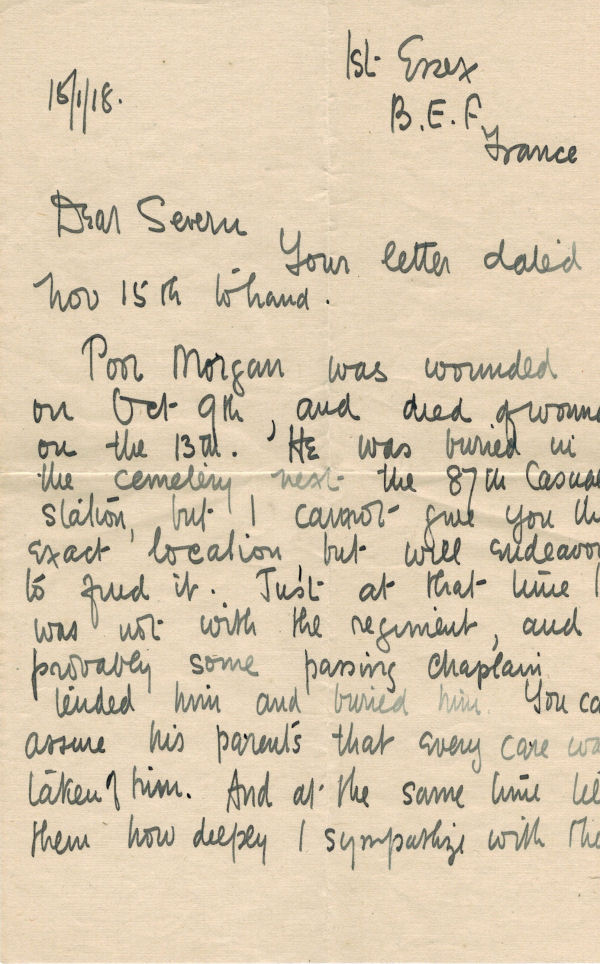 1st Essex
15/1/18.
B.E.F.
France
Dear Severn
Your letter dated
Nov 15th to hand.
Poor Morgan was wounded
on Oct 9th, and died of wound
on the 13th. He was buried in
the cemetery next the 87th Casual
station, but I cannot give you th
exact location, but will endeavou
to find it. Just at that time I
was not with the regiment, and
provably some passing chaplain
tended him and buried him. You ca
assure his parents that every care wa
taken of him. And at the same time
them how deeply I sympathize with